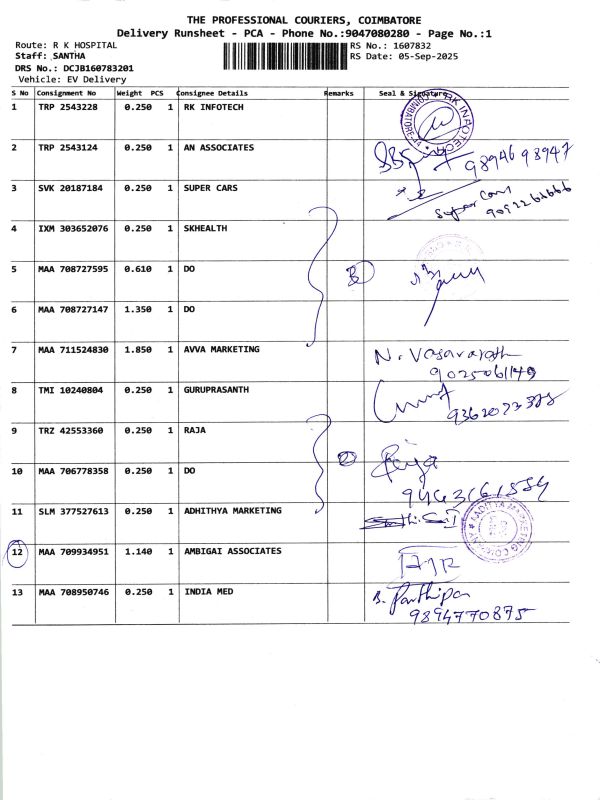 THE PROFESSIONAL COURIERS, COIMBATORE
Delivery Runsheet - PCA - Phone No.:9047080280 - Page No.:1
Route: R K HOSPITAL RS No.: 1607832
Staff: SANTHA RS Date: 05-Sep-2025
DRS No.: DCJB160783201
Vehicle: EV Delivery
S No Consignment No Weight PCS Consignee Details Remarks Seal & Signature
1 TRP 2543228 0.250 1 RK INFOTECH
2 TRP 2543124 0.250 1 AN ASSOCIATES 9894698947
3 SVK 20187184 0.250 1 SUPER CARS Super Cars
4 IXM 303652076 0.250 1 SKHEALTH
5 MAA 708727595 0.610 1 DO
6 MAA 708727147 1.350 1 DO
7 MAA 711524830 1.850 1 AVVA MARKETING N.
9025061149
8 TMI 10240804 0.250 1 GURUPRASANTH
9 TRZ 42553360 0.250 1 RAJA
10 MAA 706778358 0.250 1 DO
11 SLM 377527613 0.250 1 ADHITHYA MARKETING
12 MAA 709934951 1.140 1 AMBIGAI ASSOCIATES
13 MAA 708950746 0.250 1 INDIA MED B. Parthipan
9894770875